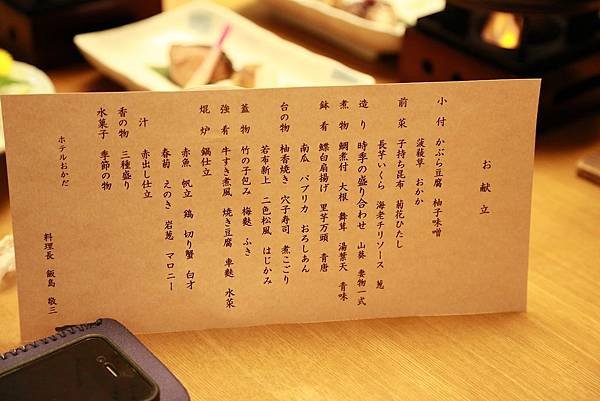 お献立
小付 かぶら豆腐 柚子味噌
菠薐草 おかか
前菜 子持ち昆布 菊花ひたし
長芋いくら 海老チリソース 葱
造り 時季の盛り合わせ 山葵 妻物一式
煮物 鯛煮付 大根 舞茸 湯葉天 青味
鉢肴 鰈白扇揚げ 里芋万頭 青唐
南瓜 パプリカ おろしあん
台の物 柚香焼き 穴子寿司 煮こごり
若布新上 二色松風 はじかみ
蓋物 竹の子包み 梅麩 ふき
強肴 牛すき煮風 焼き豆腐 車麩 水菜
焜炉 鍋仕立
赤魚 帆立 鶏 切り蟹 白才
春菊 えのき 岩葱 マロニー
汁 赤出し仕立
香の物 三種盛り
水菓子 季節の物
ホテルおかだ
料理長 飯島 敬三